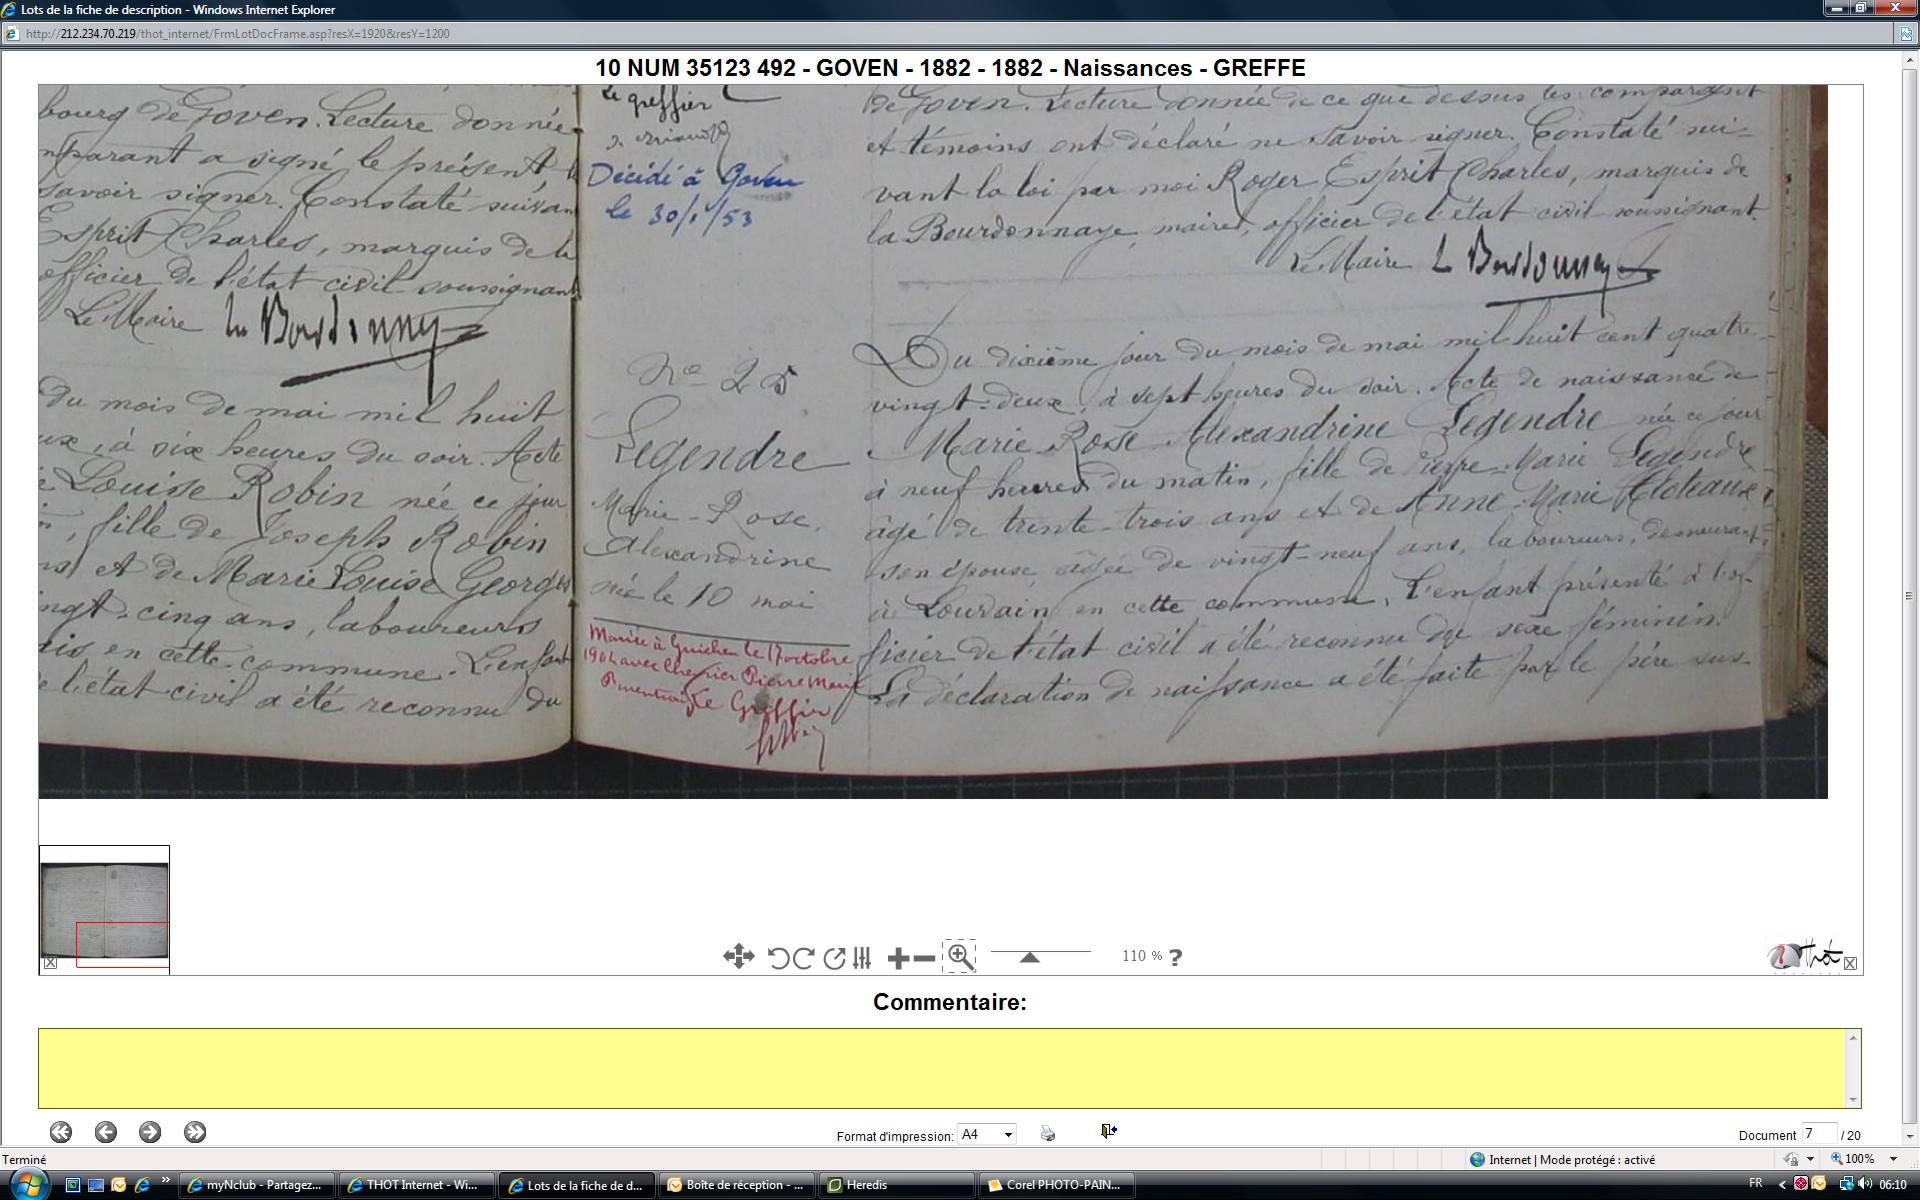 Lots de la fiche de description - Windows Internet Explorer
http://212.234.70.219/thot_internet/FrmLotDocFrame.asp?resX=1920&resY=1200
10 NUM 35123 492 - GOVEN - 1882 - 1882 - Naissances - GREFFE
bourg de Goven. Lecture donnée
mparant a signé le présent
savoir signer. Constaté suivan
Esprit Charles, marquis de la
officier de l'état civil soussignant
Le Maire La Bourdonnaye
Du mois de mai mil huit
ux, à six heures du soir. Acte
Louise Robin née ce jour
, fille de Joseph Robin
ns et de Marie Louise Georges
ingt-cinq ans, laboureurs
en cette commune. L'enfant
e l'état civil a été reconnu du
Le greffier
Décidé à Goven
le 30/1/53
No 25
Legendre
Marie-Rose
Alexandrine
née le 10 mai
Mariée à Guichen le 17 octobre
1904 avec Pierre Marie
Le Greffier
de Goven. Lecture donnée de ce que dessus les comparant
et témoins ont déclaré ne savoir signer. Constaté sui-
vant la loi par moi Roger Esprit Charles, marquis de
la Bourdonnaye, maire, officier de l'état civil soussignant.
Le Maire La Bourdonnaye
Du dixième jour du mois de mai mil huit cent quatre-
vingt-deux, à sept heures du soir. Acte de naissance de
Marie Rose Alexandrine Legendre née ce jour
à neuf heures du matin, fille de Pierre Marie Legendre
âgé de trente-trois ans et de Anne Marie
son épouse, âgée de vingt-neuf ans, laboureurs, demeurant
à Louvain en cette commune. L'enfant présenté à l'of-
ficier de l'état civil a été reconnu du sexe féminin.
La déclaration de naissance a été faite par le père sus-
110 % ?
Thot
Commentaire:
Format d'impression: A4
Document 7 / 20
Terminé
Internet | Mode protégé : activé
100%
myNclub - Partagez...
THOT Internet - Wi...
Lots de la fiche de d...
Boîte de réception - ...
Heredis
Corel PHOTO-PAIN...
FR
06:10